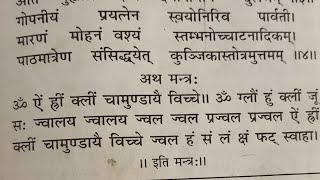 गोपनीयं प्रयत्नेन स्वयोनिरिव पार्वती।
मारणं मोहनं वश्यं स्तम्भनोच्चाटनादिकम्।
पाठमात्रेण संसिद्ध्येत् कुञ्जिकास्तोत्रमुत्तमम् ॥४॥
अथ मन्त्रः
ॐ ऐं ह्रीं क्लीं चामुण्डायै विच्चे॥ ॐ ग्लौं हुं क्लीं जूं
सः ज्वालय ज्वालय ज्वल ज्वल प्रज्वल प्रज्वल ऐं ह्रीं
क्लीं चामुण्डायै विच्चे ज्वल हं सं लं क्षं फट् स्वाहा।
॥ इति मन्त्रः॥